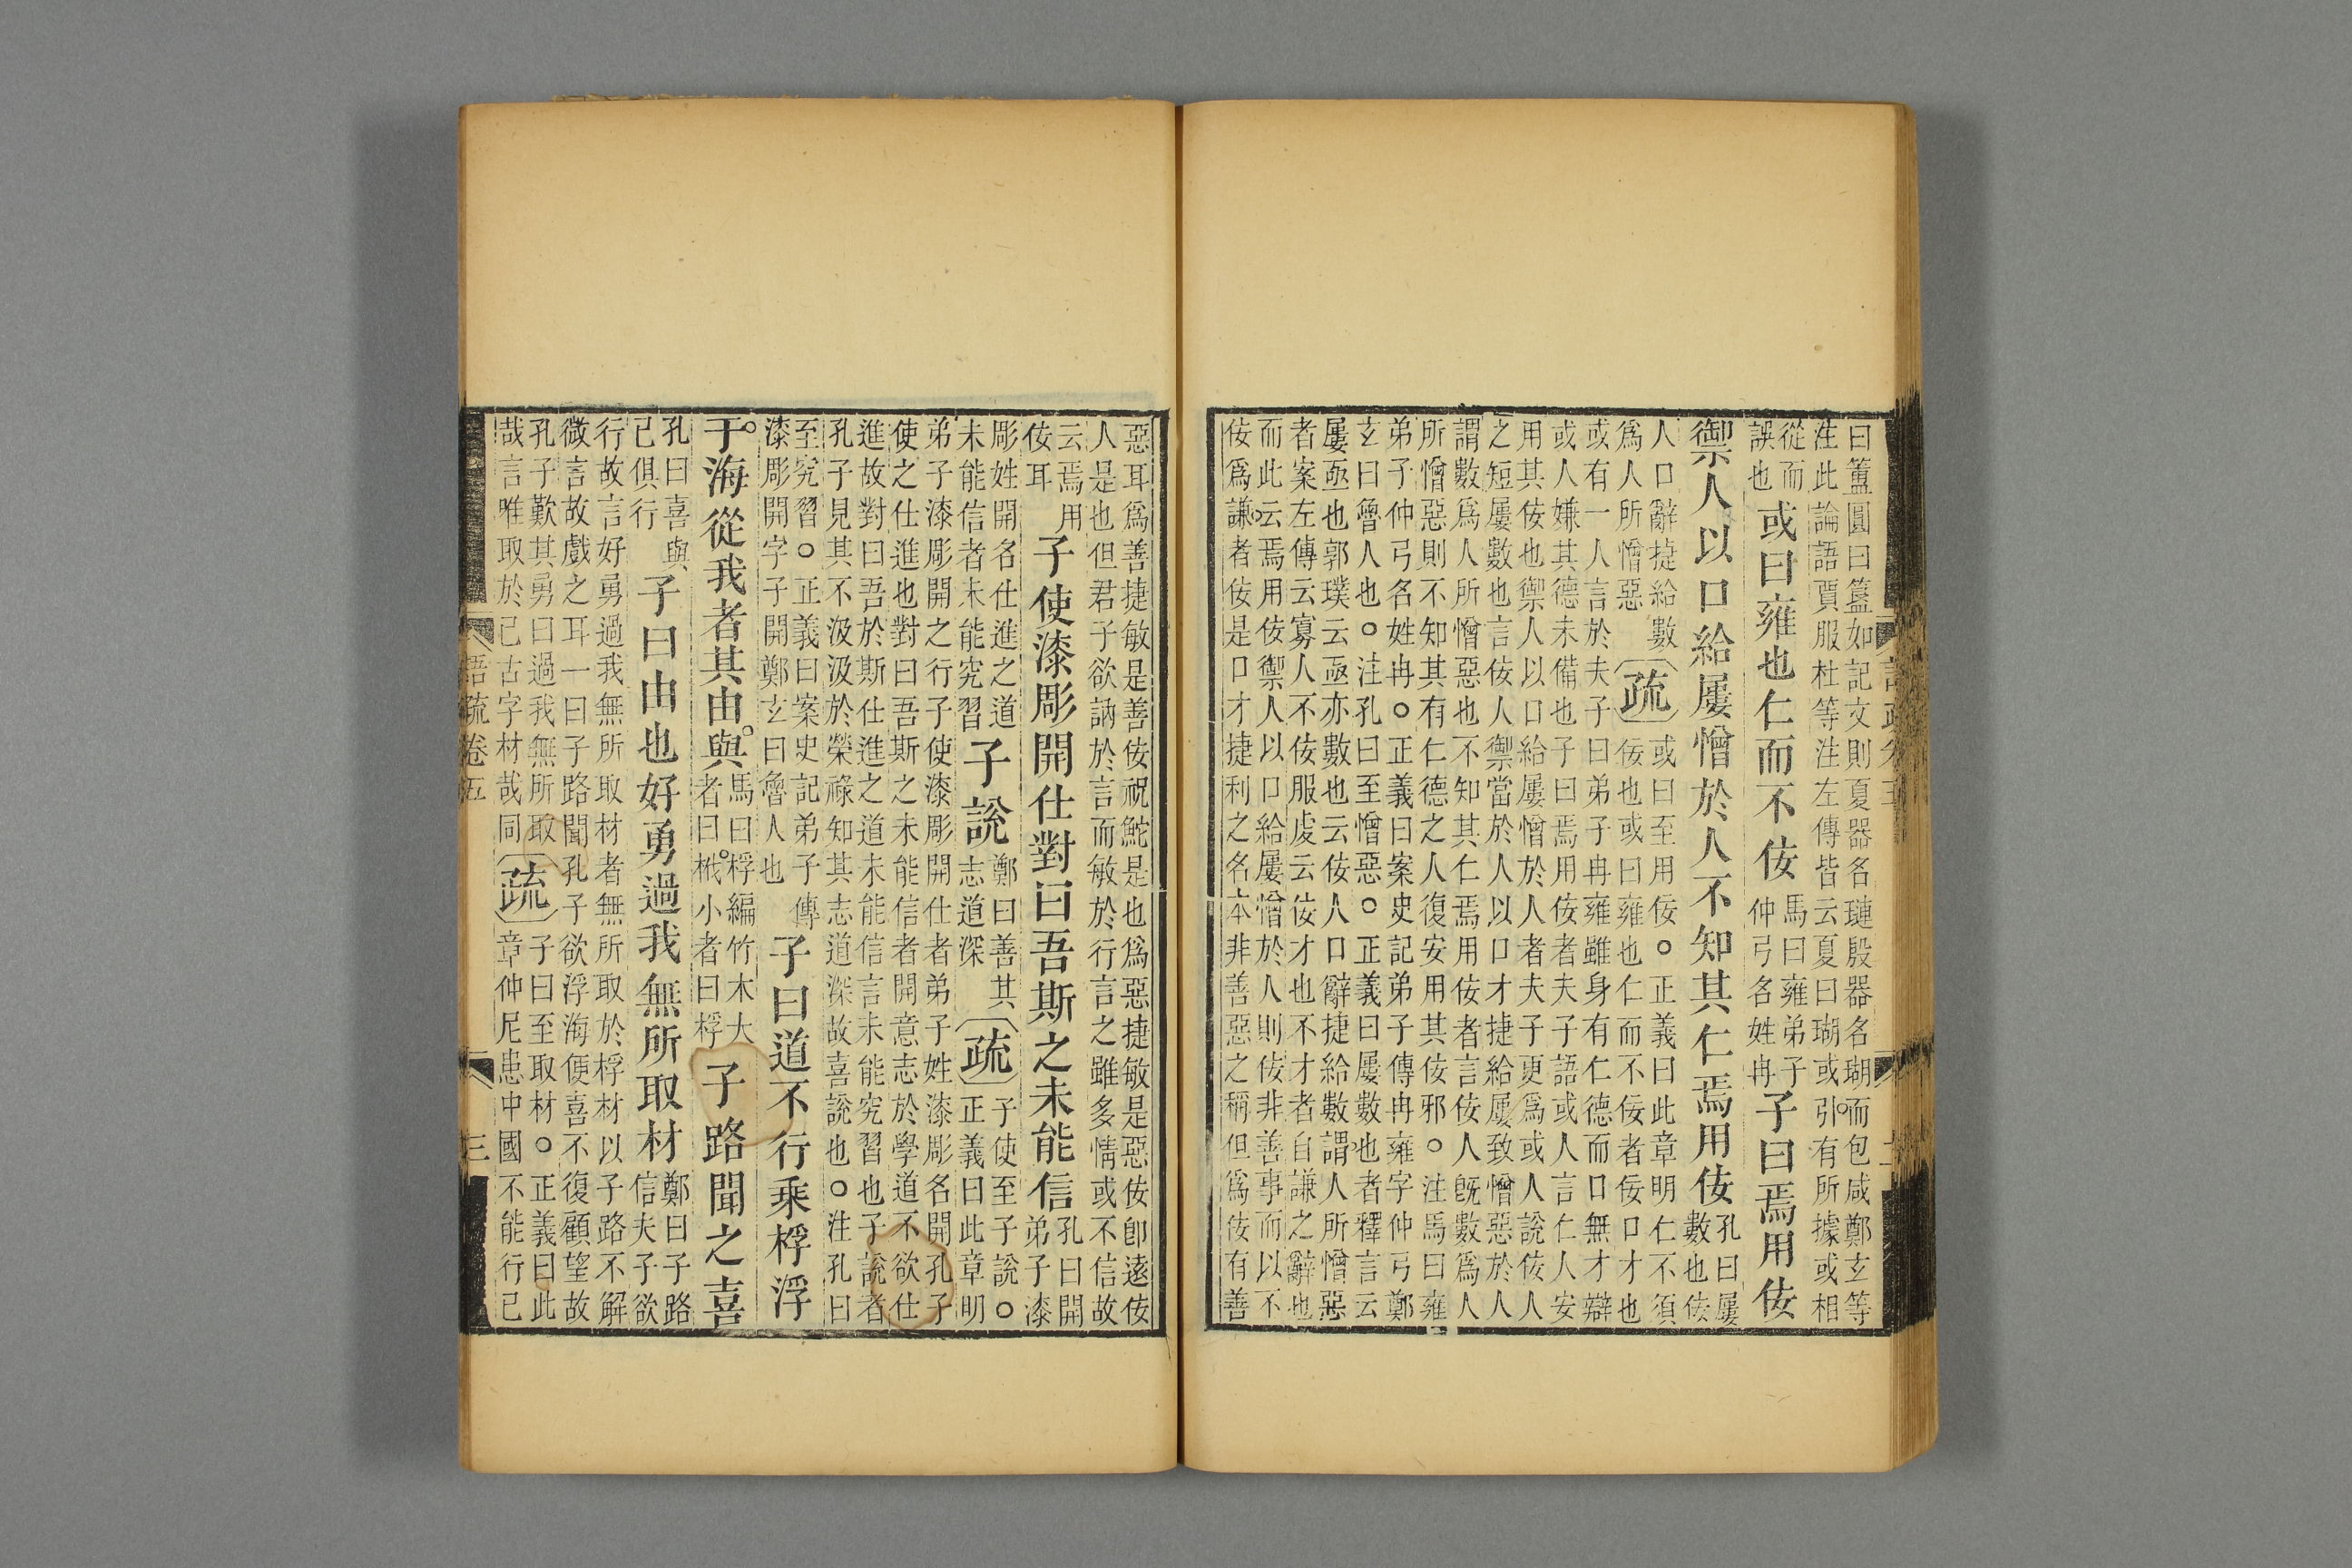 曰簠圓曰簋如記文則夏器名璉殷器名瑚而包咸鄭玄等
注此論語賈服杜等注左傳皆云夏曰瑚或引有所據或相
從而
誤也
或曰雍也仁而不佞
馬曰雍弟子
仲弓名姓冉
子曰焉用佞
禦人以口給屢憎於人不知其仁焉用佞
孔曰屢
數也佞
人口辭捷給數
爲人所憎惡
疏
或曰至用佞○正義曰此章明仁不須
佞也或曰雍也仁而不佞者佞口才也
或有一人言於夫子曰弟子冉雍雖身有仁德而口無才辯
或人嫌其德未備也子曰焉用佞者夫子語或人言仁人安
用其佞也禦人以口給屢憎於人者夫子更爲或人說佞人
之短屢數也言佞人禦當於人以口才捷給屢致憎惡於人
謂數爲人所憎惡也不知其仁焉用佞者言佞人旣數爲人
所憎惡則不知其有仁德之人復安用其佞邪○注馬曰雍
弟子仲弓名姓冉○正義曰案史記弟子傳冉雍字仲弓鄭
玄曰魯人也○注孔曰至憎惡○正義曰屢數也者釋言云
屢亟也郭璞云亟亦數也云佞人口辭捷給數謂人所憎惡
者案左傳云寡人不佞服虔云佞才也不才者自謙之辭也
而此云焉用佞禦人以口給屢憎於人則佞非善事而以不
佞爲謙者佞是口才捷利之名本非善惡之稱但爲佞有善
惡耳爲善捷敏是善佞祝鮀是也爲惡捷敏是惡佞卽遠佞
人是也但君子欲訥於言而敏於行言之雖多情或不信故
云焉用
佞耳
子使漆彫開仕對曰吾斯之未能信
孔曰開
弟子漆
彫姓開名仕進之道
未能信者未能究習
子說
鄭曰善其
志道深
疏
子使至子說○
正義曰此章明
弟子漆彫開之行子使漆彫開仕者弟子姓漆彫名開孔子
使之仕進也對曰吾斯之未能信者開意志於學道不欲仕
進故對曰吾於斯仕進之道未能信言未能究習也子說者
孔子見其不汲汲於榮祿知其志道深故喜說也○注孔曰
至究習○正義曰案史記弟子傳
漆彫開字子開鄭玄曰魯人也
子曰道不行乘桴浮
于海從我者其由與
馬曰桴編竹木大
者曰栰小者曰桴
子路聞之喜
孔曰喜與
己俱行
子曰由也好勇過我無所取材
鄭曰子路
信夫子欲
行故言好勇過我無所取材者無所取於桴材以子路不解
微言故戲之耳一曰子路聞孔子欲浮海便喜不復顧望故
孔子歎其勇曰過我無所取
哉言唯取於己古字材哉同
疏
子曰至取材○正義曰此
章仲尼患中國不能行己
語疏卷五
三